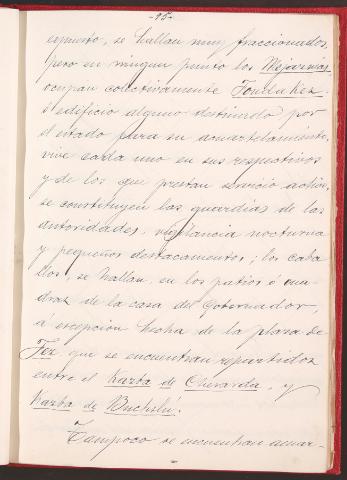 -95-
expuesto, se hallan muy fraccionados,
pero en ningun punto los Mejaznias
ocupan colectivamente Fondakes
ó edificio alguno destinado por
el estado para su acuartelamiento,
vive cada uno en sus respectivos
y de los que prestan servicio activo,
se constituyen las guardias de las
autoridades, vigilancia nocturna
y pequeños destacamentos; los caba
llos, se hallan en los patios ó cua-
dras de la casa del Gobernador,
á excepcion hecha de la plaza de
Fez que se encuentran repartidos
entre el Kazba de Cherarda, y
Kazba de
Tampoco se encuentran acuar-